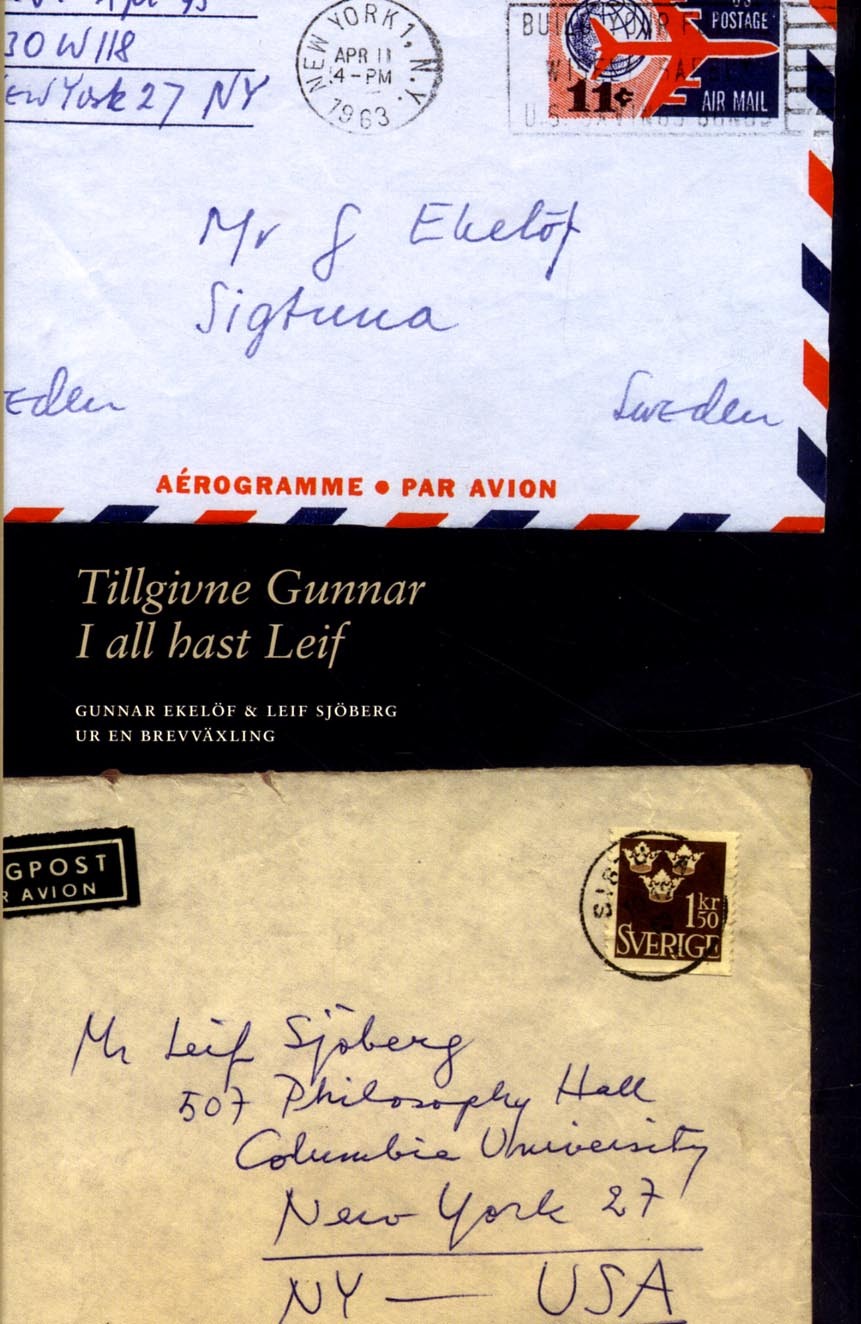 Apt 95
30 W 118
ew York 27 NY
NEW YORK 1, N.Y.
APR 11
4-PM
1963
BUILD YOUR F
U.S. SAVINGS BONDS
US
POSTAGE
11¢
AIR MAIL
Mr G Ekelöf
Sigtuna
eden
Sweden
AÉROGRAMME • PAR AVION
Tillgivne Gunnar
I all hast Leif
GUNNAR EKELÖF & LEIF SJÖBERG
UR EN BREVVÄXLING
GPOST
R AVION
SIGT
1 kr
50
SVERIGE
Mr Leif Sjöberg
507 Philosophy Hall
Columbia University
New York 27
NY — USA